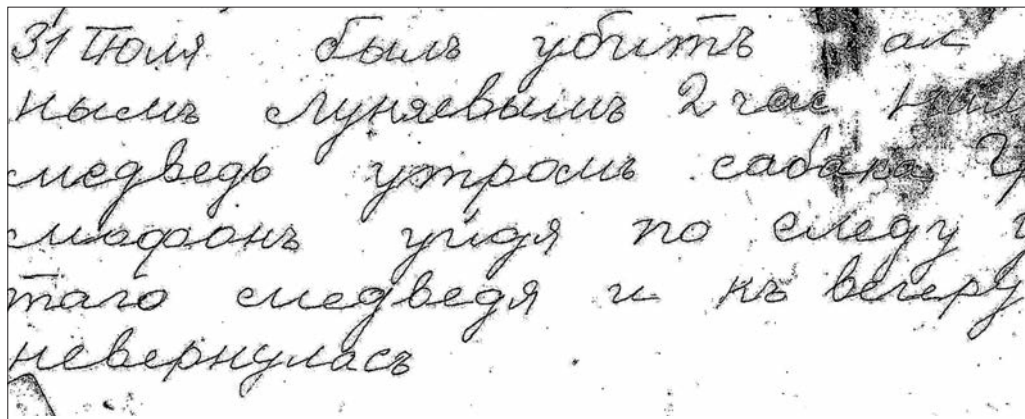 31 Июля былъ убитъ
нымъ Луняевымъ 2 час
медведь утромъ сабака
мофонъ уйдя по следу
таго медведя и къ вечеру
невернуласъ